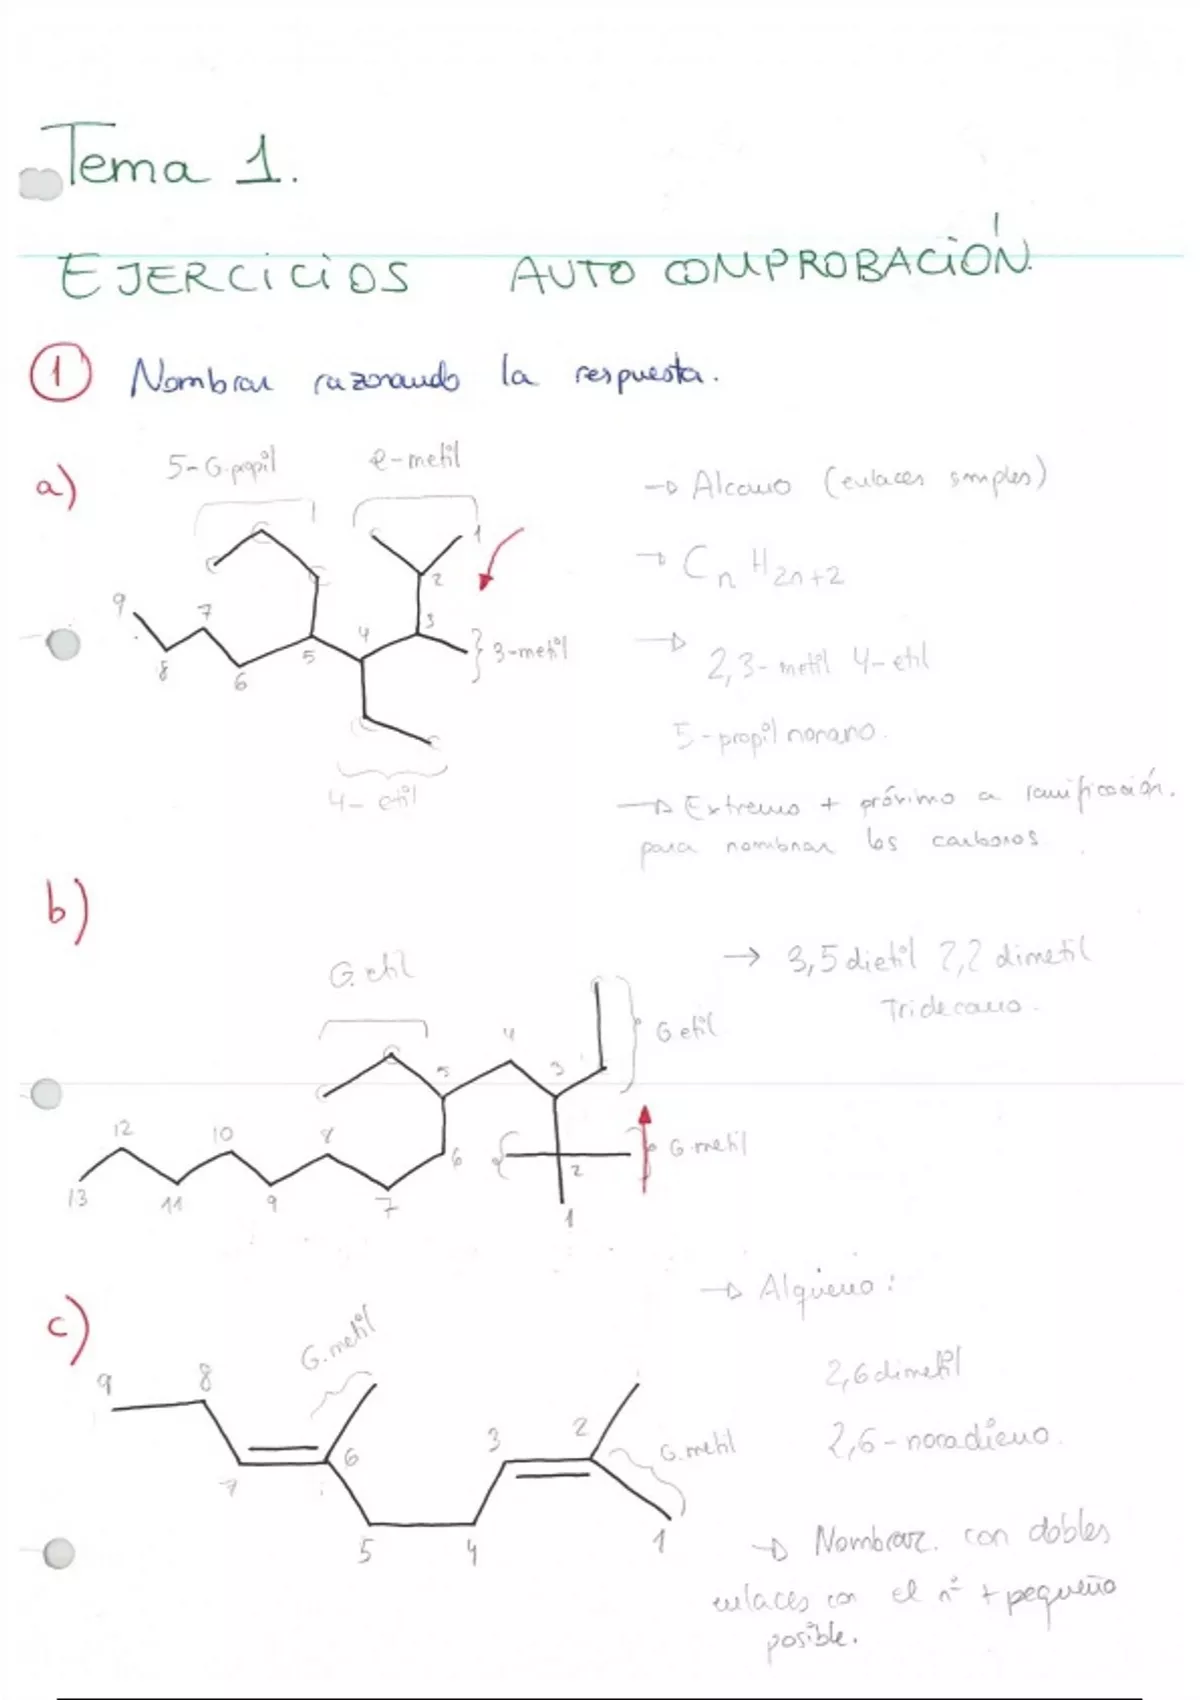 Tema 1.
EJERCICIOS AUTO COMPROBACIÓN.
1 Nombrar razonando la respuesta.
a)
5-G.propil
2-metil
→ Alcano (enlaces simples)
→ CnH2n+2
1
2
3
4
5
6
7
8
9
3-metil
4-etil
→ 2,3-metil 4-etil
5-propil nonano.
→ Extremo + próximo a ramificación.
para nombrar los carbonos
b)
→ 3,5 dietil 2,2 dimetil
Tridecano.
G.etil
G etil
G.metil
1
2
3
4
5
6
7
8
9
10
11
12
13
c)
→ Alqueno:
2,6 dimetil
2,6-nonadieno.
G.metil
G.metil
9
8
7
6
5
4
3
2
1
→ Nombrar. con dobles
enlaces con el nº + pequeño
posible.